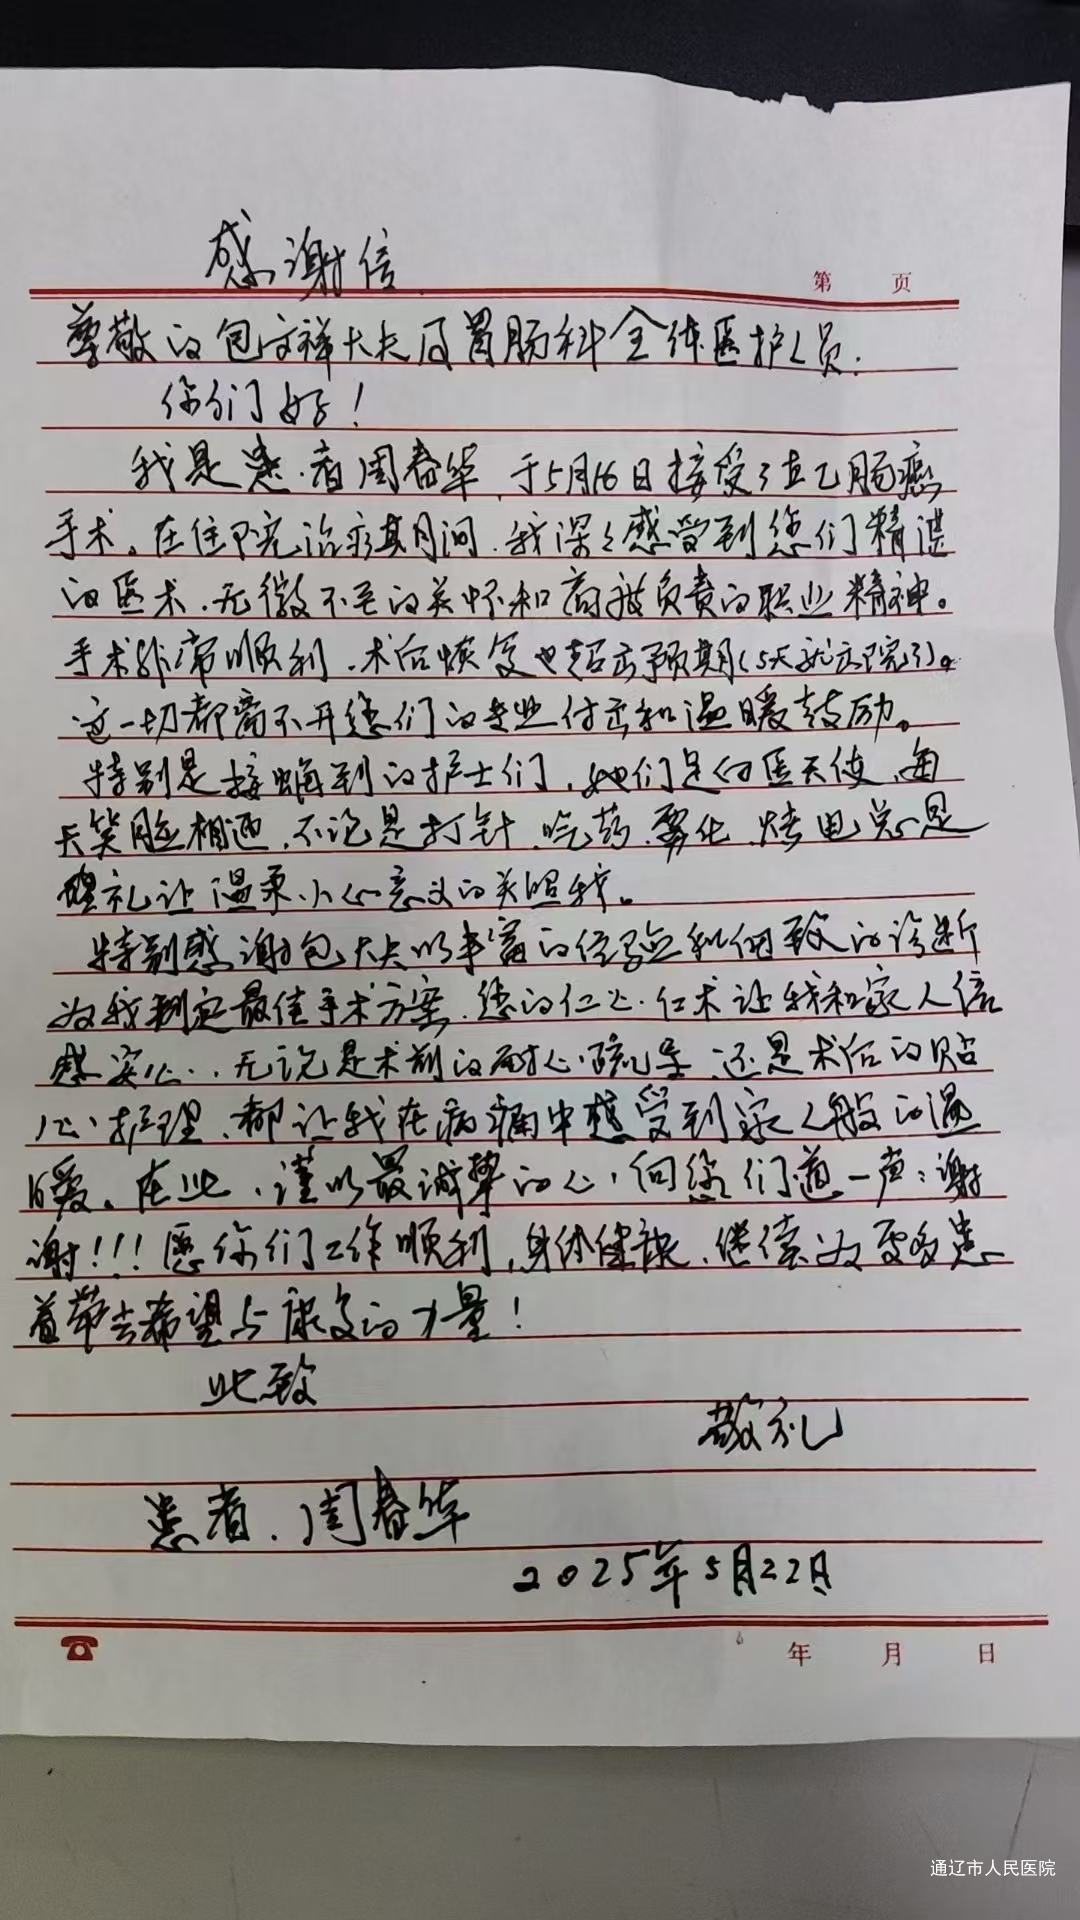 感谢信
第 页
尊敬的包文祥大夫及胃肠科全体医护人员.
你们好！
我是患者周春华,于5月16日接受了直乙肠癌
手术。在住院治疗期间,我深深感受到您们精湛
的医术,无微不至的关怀和高度负责的职业精神。
手术非常顺利,术后恢复也超出预期(5天就出院了)。
这一切都离不开您们的专业付出和温暖鼓励。
特别是接触到的护士们,她们是白衣天使,每
天笑脸相迎,不论是打针,吃药,雾化,烤电总是
礼让温柔,小心意义的关照我。
特别感谢包大夫以丰富的经验和细致的诊断
为我制定最佳手术方案,您的仁心仁术让我和家人倍
感安心,无论是术前的耐心疏导,还是术后的贴
心护理,都让我在病痛中感受到家人般的温
暖。在此,谨以最诚挚的心,向您们道一声:谢
谢!!!愿你们工作顺利,身体健康,继续为更多患
者带去希望与康复的力量!
此致
敬礼
患者.周春华
2025年5月22日
年 月 日
通辽市人民医院